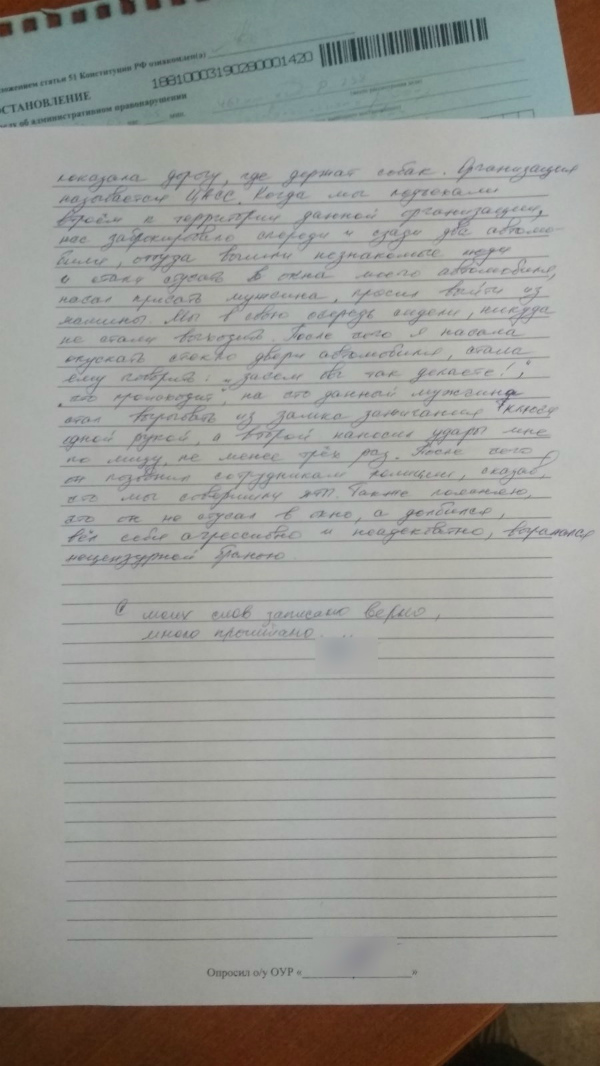 ложением статьи 51 Конституции РФ ознакомлен(а)
18810003190280001420
ОСТАНОВЛЕНИЕ
об административном правонарушении
показала дорогу, где держат собак. Организация
называется ЦКСС. Когда мы подъехали
втроём к территрии данной организации,
нас заброкировало спереди и сзади два автомо-
биля, откуда вышли незнакомые люди
и стали стучать в окна моего автомобиля,
мужчина, просил выйти из
машины. Мы в свою очередь сидели, никуда
не стали выходить. После чего я начала
опускать стекло двери автомобиля, стала
ему говорить: "зачем вы так делаете!",
"что происходит", на что данный мужчина
стал вырывать из замка зажигания ключи
одной рукой, а второй наносил удары мне
по лицу, не менее трёх раз. После чего
он позвонил сотрудникам полиции, сказав,
что мы совершили ДТП. Также поясняю,
что он не стучал в окно, а долбился,
вёл себя агрессивно и неадекватно, выражался
нецензурной бранью.
С моих слов записано верно,
мною прочитано.
Опросил о/у ОУР «____________________»